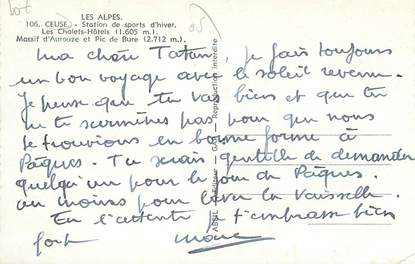 LES ALPES.
106. CEUSE. - Station de sports d'hiver.
Les Chalets-Hôtels (1.605 m.).
Massif d'Aurouze et Pic de Bure (2.712 m.).
Ma chère Tatan, je fais toujours
un bon voyage avec le soleil revenu.
Je pense que tu vas bien et que tu
ne te surmènes pas pour que nous
te trouvions en bonne forme à
Pâques. Tu serais gentille de demander
quelqu'un pour le jour de Pâques.
au moins pour laver la vaisselle.
En l'attente je t'embrasse bien
fort
Reproduction interdite